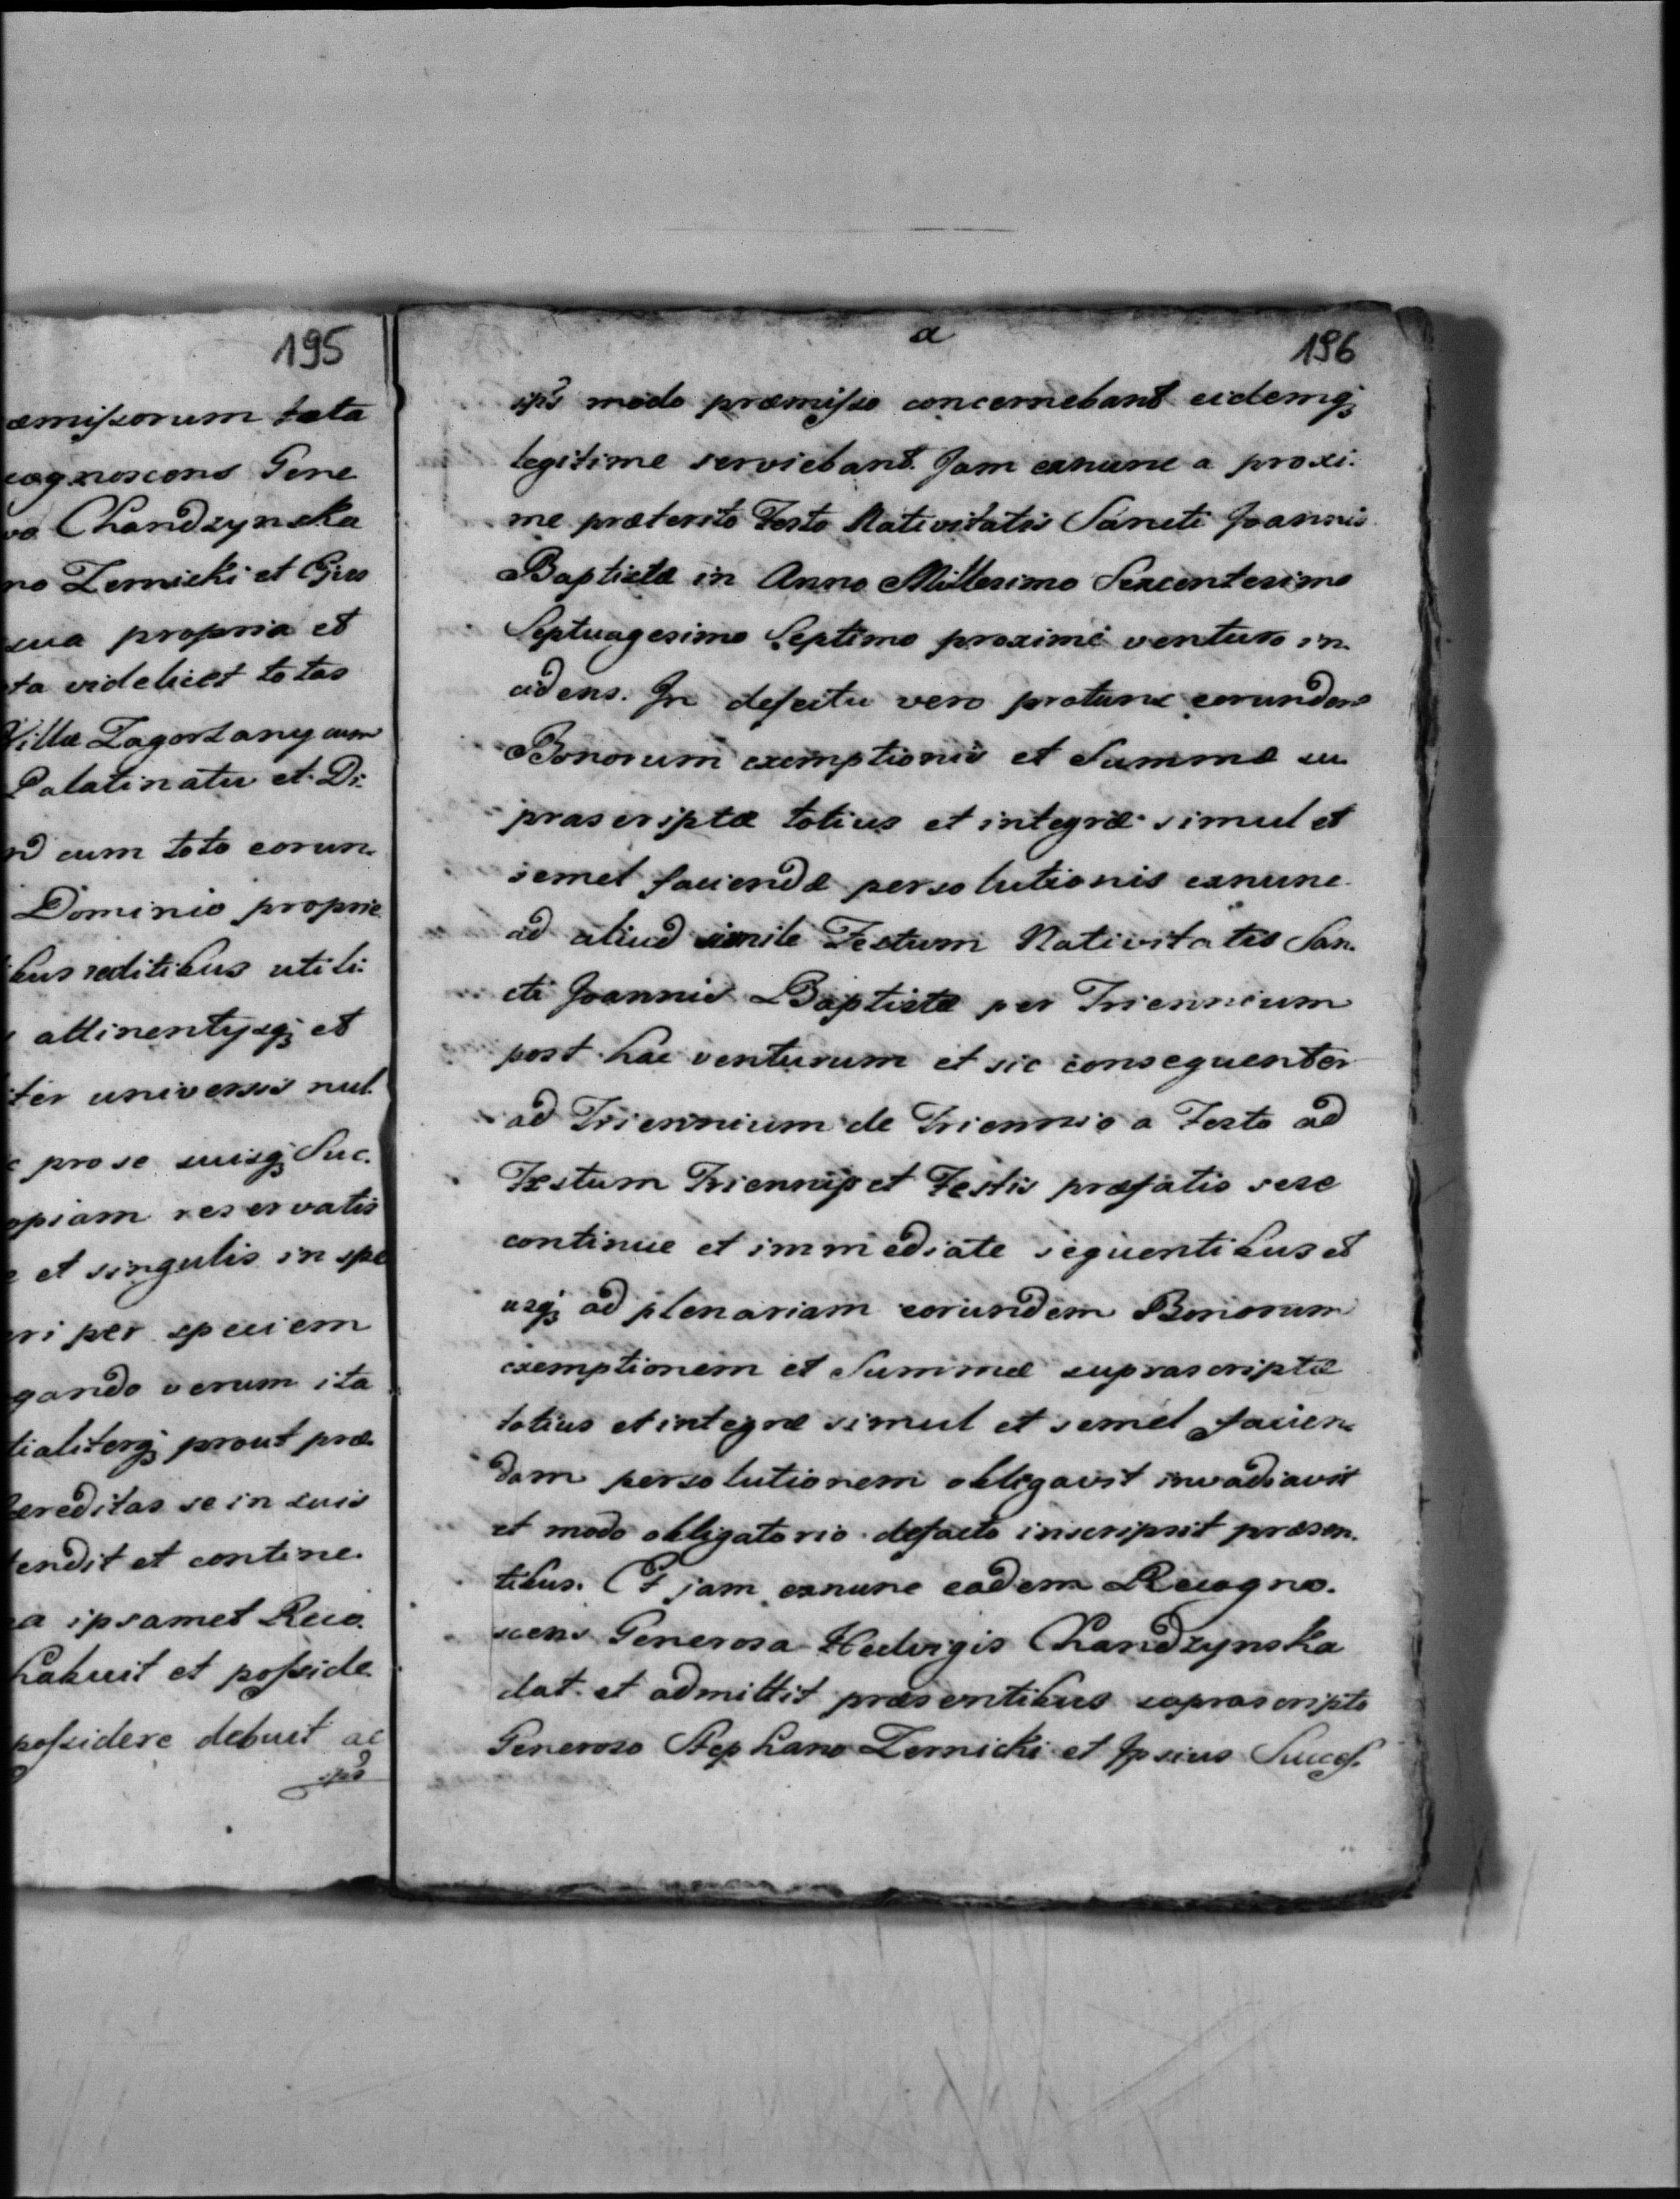 195
æmissorum tota
cognoscens Gene
va Chandzynska
no Zernicki et Ejus
sua propria et
ta videlicet totas
Villæ Zagorzany cum
Palatinatu et Di
d cum toto eorun
Dominio proprie
bus reditibus utili
attinentijsq; et
ter universis nul
pro se suisq; Suc.
opiam reservatis
et singulis in spe
ri per speciem
gando verum ita
tialiterq; prout præ
hæreditas se in suis
tendit et contine.
a ipsamet Reco.
habuit et posside
possidere debuit ac
ips
a
196
ips modo præmisso concernebant eidemq;
legitime serviebant. Jam exnunc a proxi.
me præterito Festo Nativitatis Sancti Joannis
Baptistæ in Anno Millesimo Sexcentesimo
Septuagesimo Septimo proxime venturo in
cidens. In defectu vero protunc eorundem
Bonorum exemptionis et Summæ su
prascriptæ totius et integræ simul et
semel faciendæ persolutionis exnunc
ad aliud simile Festum Nativitatis San.
cti Joannis Baptistæ per Triennium
post hac venturum et sic consequenter
ad Triennium de Triennio a Festo ad
Festum Triennijs et Festis præfatis sese
continue et immediate sequentibus et
usq; ad plenariam eorundem Bonorum
exemptionem et Summæ suprascriptæ
totius et integræ simul et semel facien
dam persolutionem obligavit invadiavit
et modo obligatorio defacto inscripsit præsen.
tibus. Et jam exnunc eadem Recogno.
scens Generosa Hedvigis Chandzynska
dat et admittit præsentibus suprascripto
Generoso Stephano Zernicki et Ipsius Success.